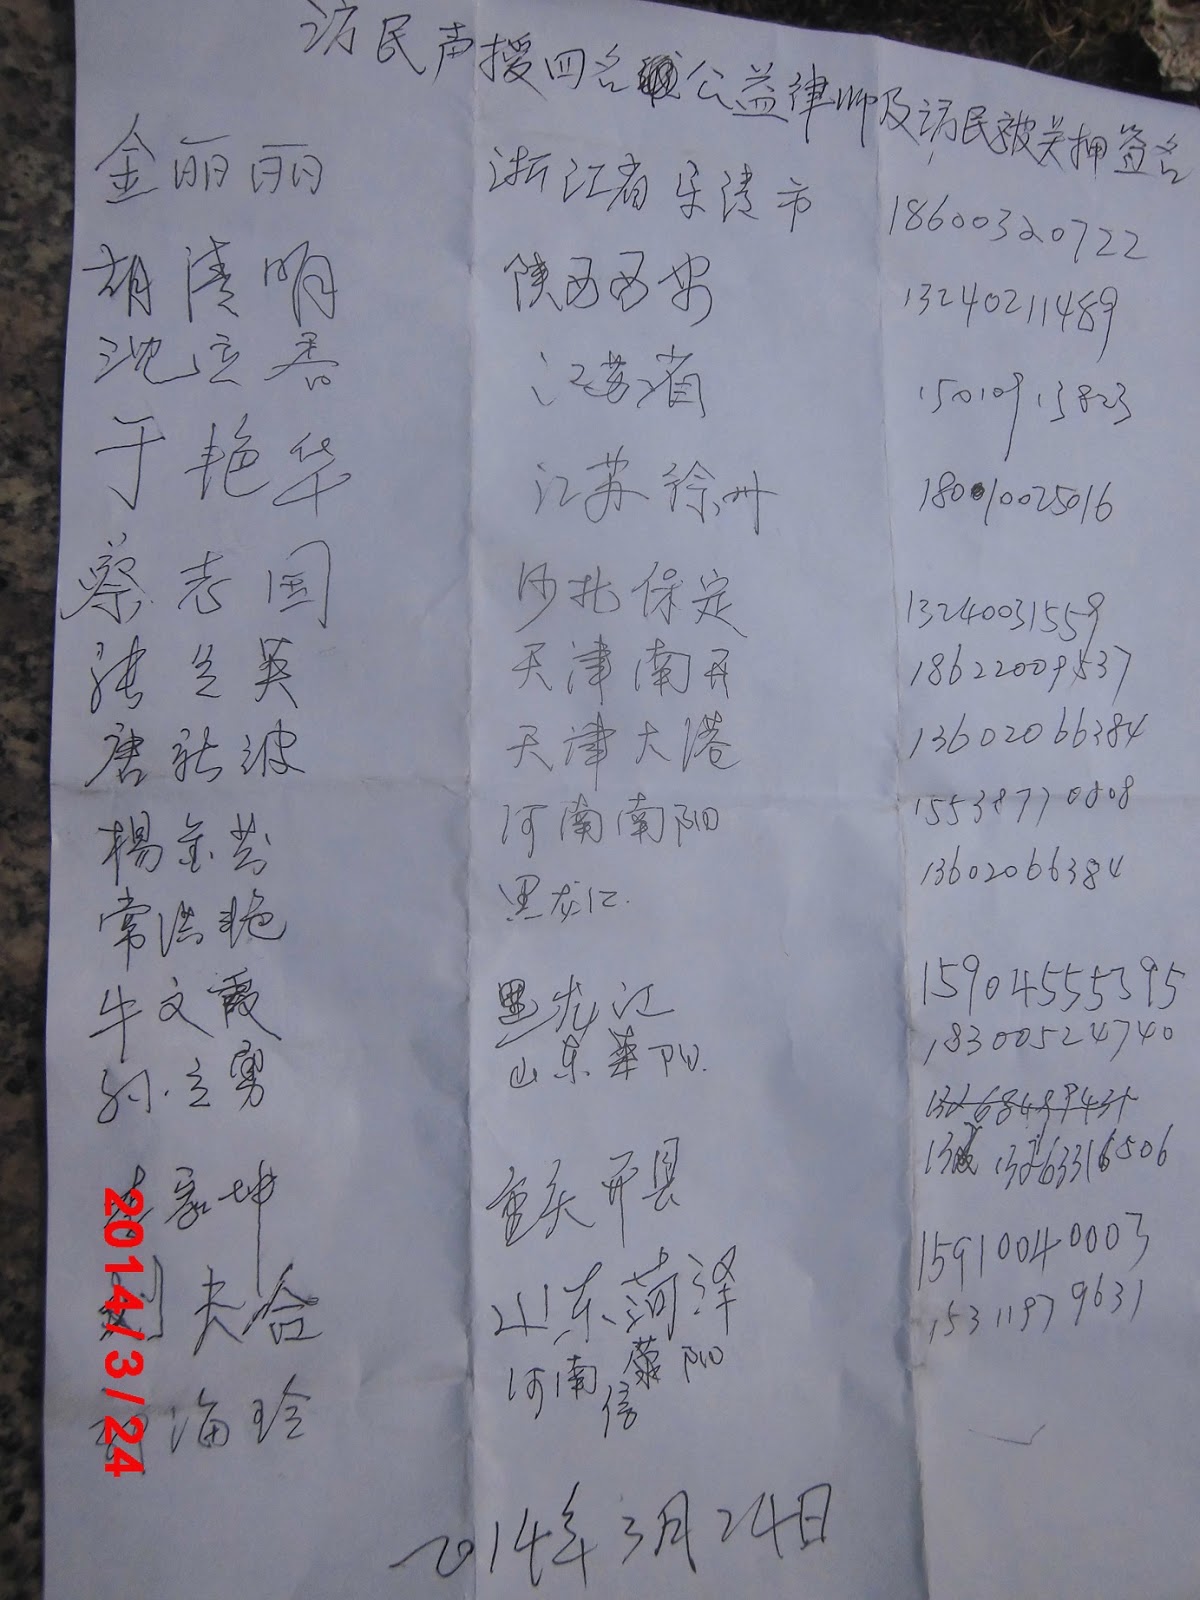 访民声援四名公益律师及访民被关押签名
金丽丽 浙江省乐清市 18600320722
胡清明 陕西西安 13240211489
沈立香 江苏省 15010913823
于艳华 江苏徐州 18010025016
蔡志国 河北保定 13240031559
张兰英 天津南开 18622009537
唐新波 天津大港 13602066384
杨金芬 河南南阳 15538770808
常洪艳 黑龙江. 13602066384
牛文霞 黑龙江 15904555395
孙立勇 山东莱阳. 18300524740
坤 重庆开县 13263316506
刘夫合 山东菏泽 15910040003
海玲 河南信阳 15311979631
2014年3月24日
2014/3/24